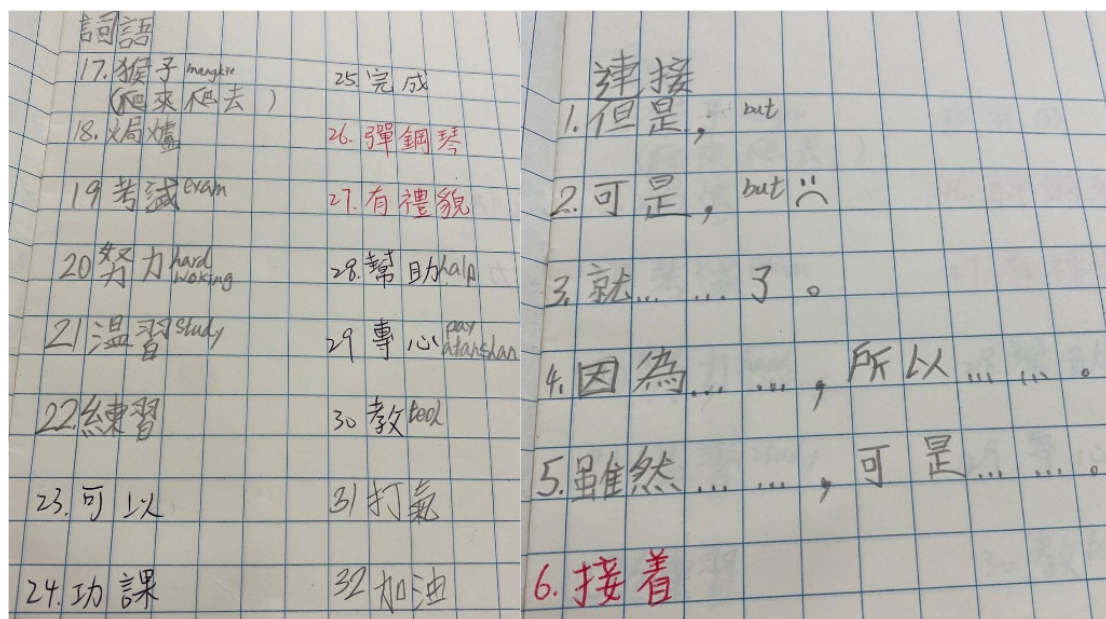 詞語
17. 猴子 mangkie
(爬來爬去)
18. 焗爐
19 考試 exam
20 努力 hard woking
21 溫習 study
22 練習
23. 可以
24. 功課
25. 完成
26. 彈鋼琴
27. 有禮貌
28. 幫助 halp
29 專心 pay atanshan
30 教
31 打氣
32 加油
連接
1. 但是, but
2. 可是, but
3. 就… …了。
4. 因為… …, 所以… …。
5. 雖然… …, 可是… …。
6. 接着